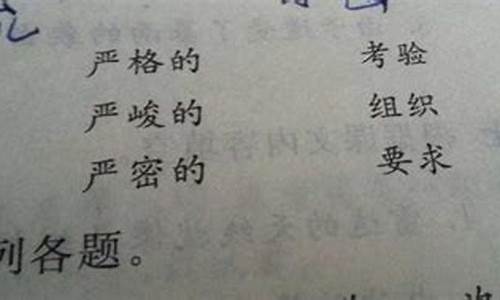 严格的 考验
严峻的 组织
严密的 要求
列各题。